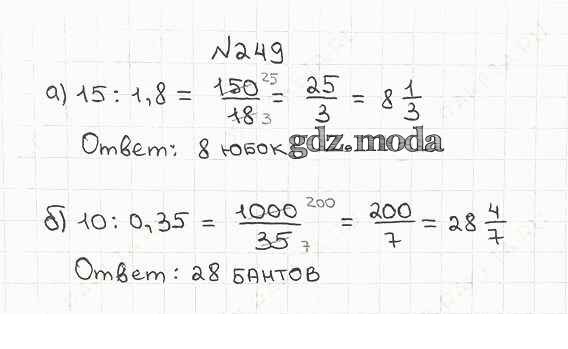 №249
а) 15 : 1,8 = 150/18 25 3 = 25/3 = 8 1/3
Ответ: 8 юбок gdz.moda
б) 10 : 0,35 = 1000/35 200 7 = 200/7 = 28 4/7
Ответ: 28 бантов